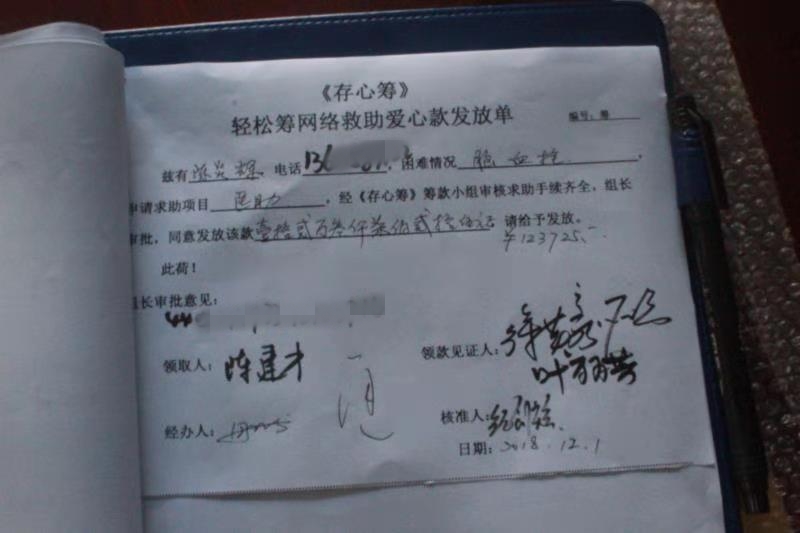 《存心筹》
轻松筹网络救助爱心款发放单
编号：筹
兹有 炎辉 电话 13 ，困难情况 脑血栓 ，
申请求助项目 医助 ，经《存心筹》筹款小组审核求助手续齐全，组长
审批，同意发放该款壹拾贰万叁仟柒佰贰拾伍元 请给予发放。
¥123725.-
此荷！
组长审批意见：
领取人：陈建才
领款见证人：
经办人：
核准人：
日期：2018.12.1